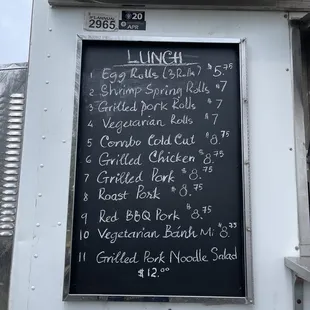 2965
20
APR
LUNCH
1 Egg Rolls (3 Rolls) $5.75
2 Shrimp Spring Rolls $7
3 Grilled Pork Rolls $7
4 Vegetarian Rolls $7
5 Combo Cold Cut $8.75
6 Grilled Chicken $8.75
7 Grilled Pork $8.75
8 Roast Pork $8.75
9 Red BBQ Pork $8.75
10 Vegetarian Bánh Mi $8.75
11 Grilled Pork Noodle Salad
$12.00